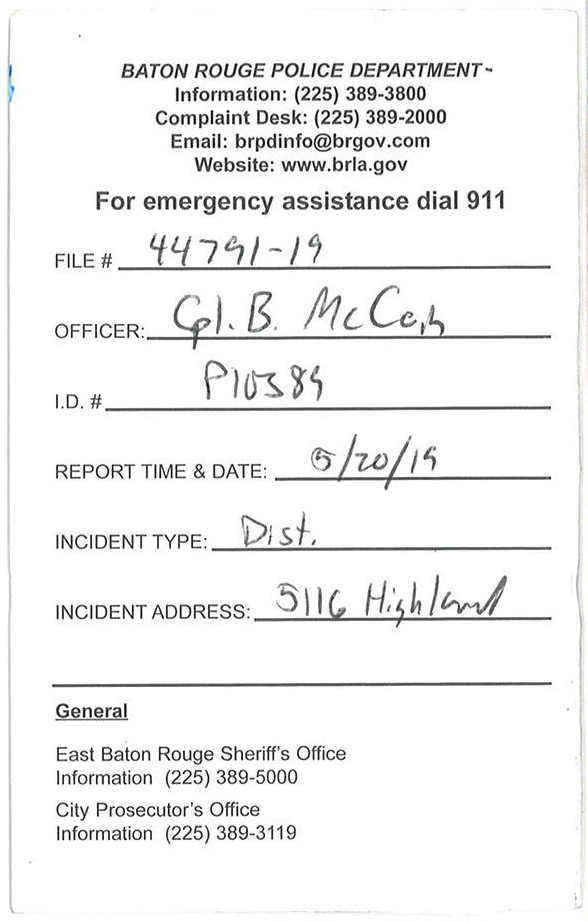 BATON ROUGE POLICE DEPARTMENT-
Information: (225) 389-3800
Complaint Desk: (225) 389-2000
Email: brpdinfo@brgov.com
Website: www.brla.gov
For emergency assistance dial 911
FILE # 44791-19
OFFICER: Cpl. B.
I.D. # P10389
REPORT TIME & DATE: 5/20/19
INCIDENT TYPE: Dist.
INCIDENT ADDRESS: 5116 Highland
General
East Baton Rouge Sheriff's Office
Information (225) 389-5000
City Prosecutor's Office
Information (225) 389-3119